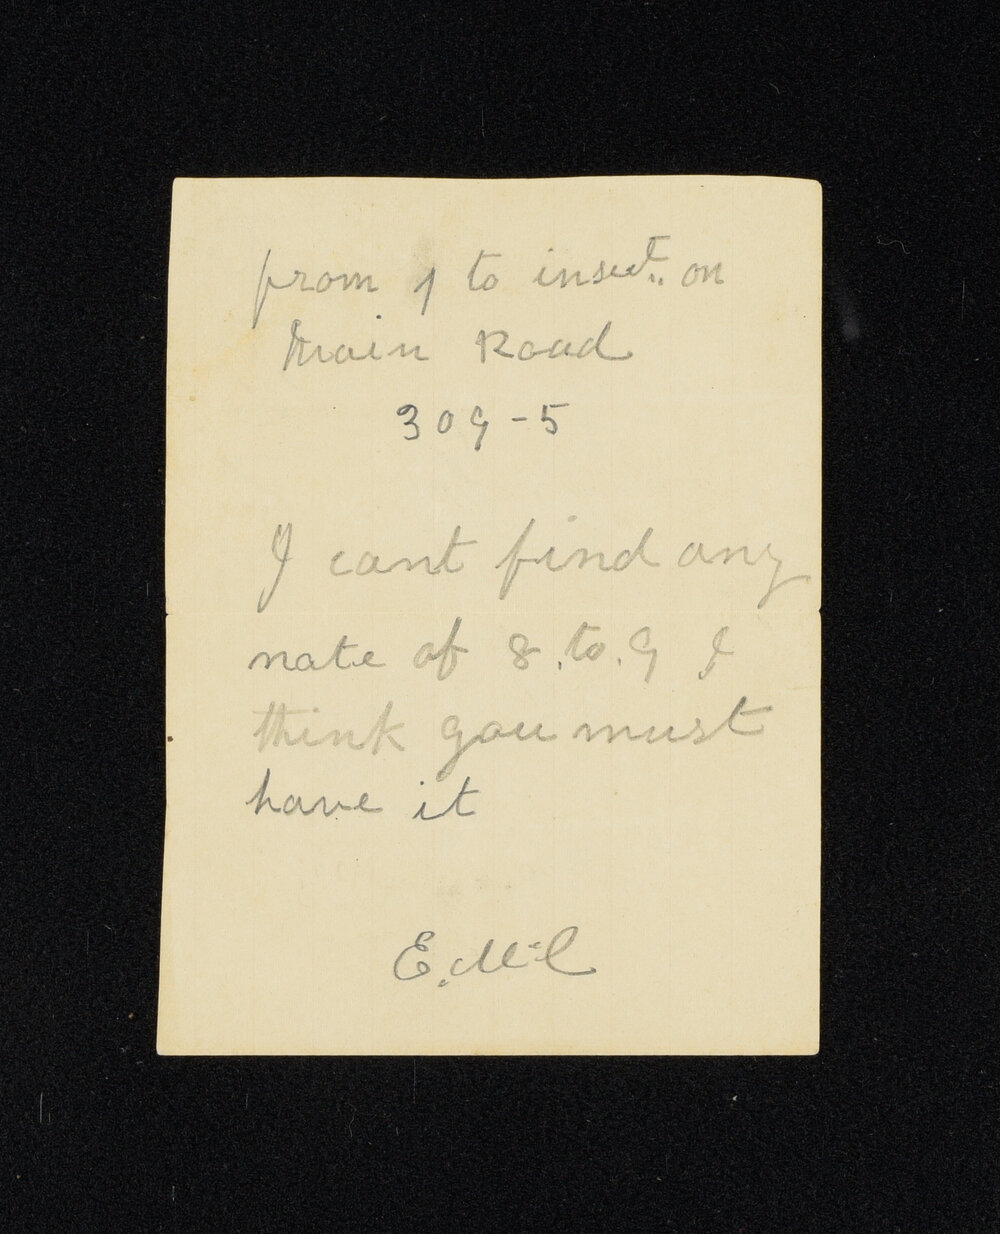 from 1 to insect. on
Main Road
309-5
I cant find any
note of 8.to.9 I
think you must
have it
E. McC